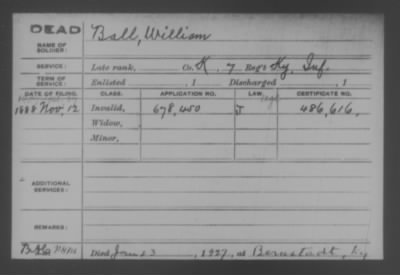 DEAD
NAME OF SOLDIER: Ball, William
SERVICE: Late rank, Co. K, 7 Reg't Ky. Inf.
TERM OF SERVICE: Enlisted , 1 Discharged , 1
DATE OF FILING. CLASS. APPLICATION NO. LAW. CERTIFICATE NO.
1888 Nov. 12 Invalid, 678,450 J 486,616.
Widow,
Minor,
ADDITIONAL SERVICES:
REMARKS:
Died Jan 23, 1927, at Bernstadt, Ky